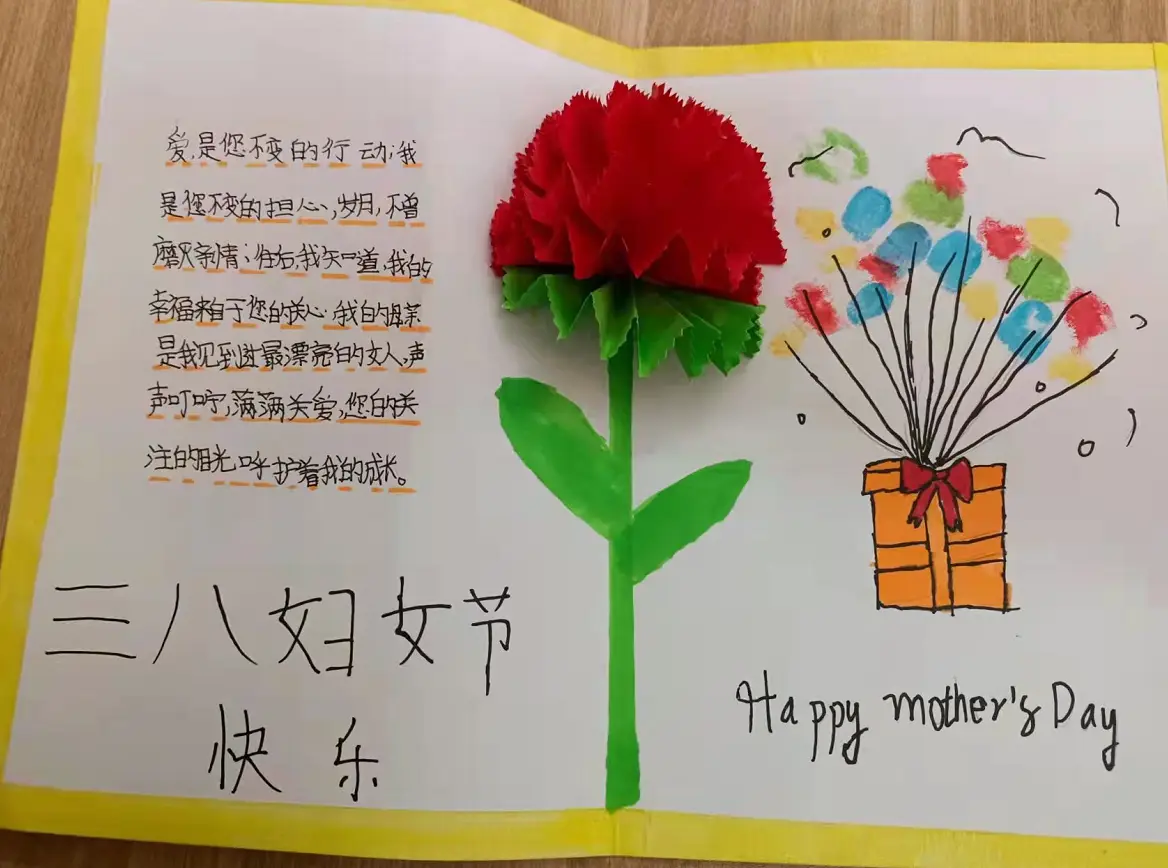 爱,是您不变的行动;我
是您不变的担心,岁月,不曾
磨灭亲情;往后,我知道,我的
幸福来自于您的关心;我的母亲
是我见到过最漂亮的女人,声
声叮咛,满满关爱,您的关
注的阳光呼护着我的成长。
三八妇女节
快乐
Happy mother's Day